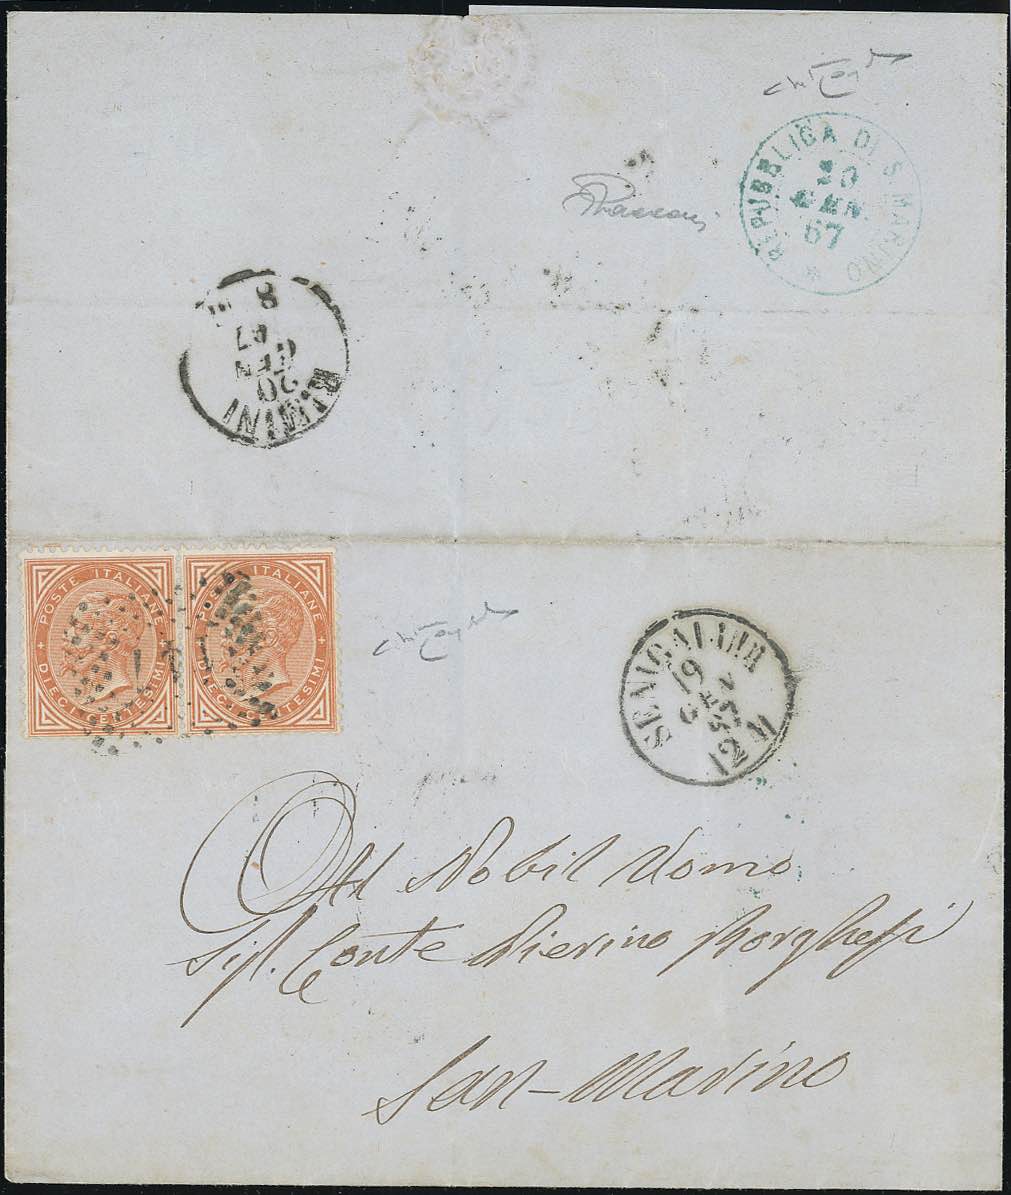 REPUBBLICA DI S. MARINO
20
GEN
67
8
67
GEN
20
RIMINI
POSTE ITALIANE
DIECI CENTESIMI
POSTE ITALIANE
DIECI CENTESIMI
19
12 M
Al Nobil Uomo
Sig. Conte Pierino Borghesi
San-Marino